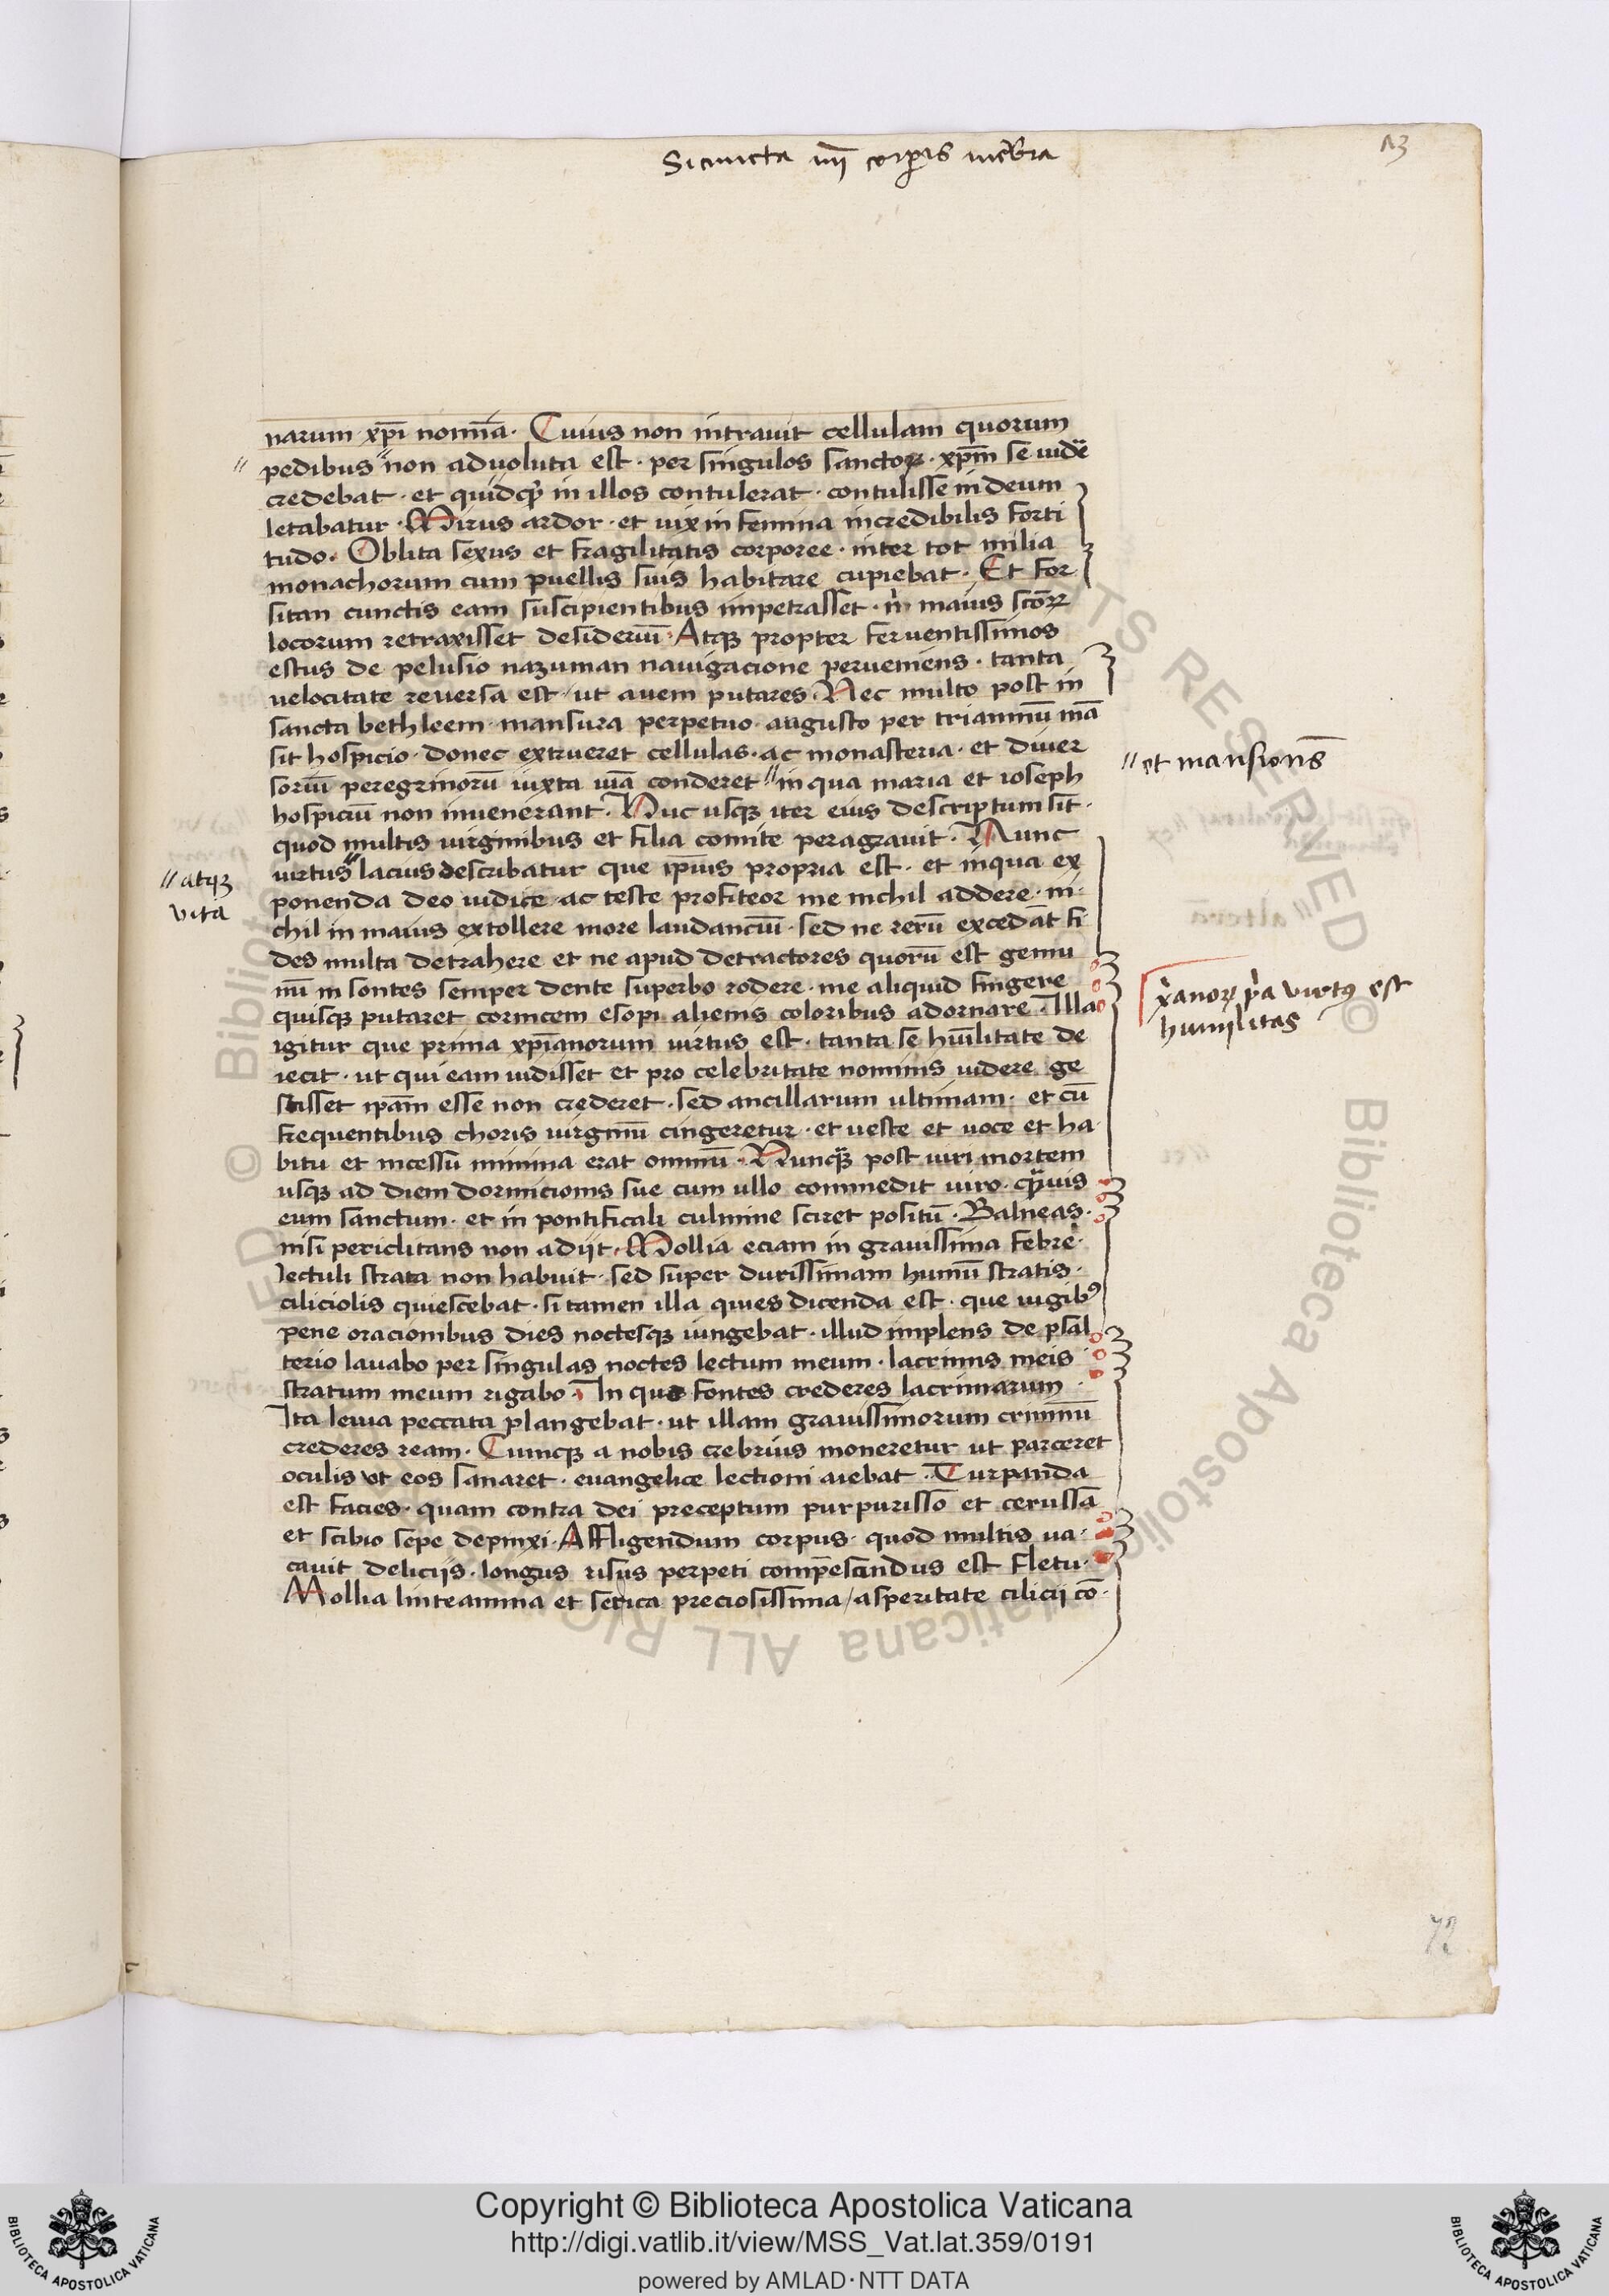 corꝑis
narum xp̅i nomina. Cuius non intrauit cellulam quorum
pedibus " non aduoluta est · per singulos sanctoꝝ · xp̅m se uidē
credebat · et quidqͥd in illos contulerat · contulisse in deum
letabatur · Mirus ardor · et uix in femina incredibilis forti
tudo. Oblita sexus et fragilitatis corporee · inter tot milia
monachorum cum puellis suis habitare cupiebat · Et for
sitan cunctis eam suscipientibus impetrasset · nͥ maius sc̄oꝝ
locorum retraxisset desideriū · Atqꝫ propter feruentissimos
estus de pelusio nazuman nauigacione perueniens · tanta
velocitate reuersa est / ut auem putares. Nec multo post in
sancta bethleem mansura perpetuo · angusto per trianniū mā
sit hospicio · donec extrueret cellulas · ac monasteria · et diuer
soriū peregrinorū iuxta uiā conderet " in qua maria et ioseph
" et mansion̄s
hospiciū non inuenerant. Huc usqꝫ iter eius descriptum sit ·
quod multis virginibus et filia comite peragrauit · Nunc
uirtus " lacius describatur que ip̄ius propria est · et in qua ex
" atqꝫ
vita
ponenda deo iudice · ac teste profiteor me nichil addere · ni
chil in maius extollere more laudanciū · sed ne rerū excedāt fi
des multa detrahere et ne apud detractores quorū est genui
nū in sontes semper dente superbo rodere · me aliquid fingere
quisqꝫ putaret cornicem esopi alienis coloribus adornare. Illa
x̄anoꝝ pͥa virtꝰ est
humilitas
igitur que prima xp̄ianorum uirtus est · tanta se hūilitate de
iecit · ut qui eam uidisset et pro celebritate nominis uidere ge
stisset ip̄am esse non crederet · sed ancillarum ultimam · et cū
frequentibus choris uirginū cingeretur · et ueste et uoce et ha
bitu et incessu minima erat omniū. Nunqᷓ post uiri mortem
usqꝫ ad diem dormicionis sue cum ullo commedit uiro · qᷓuis
eum sanctum · et in pontificali culmine sciret positū · Balneas ·
nisi periclitans non adijt. Mollia eciam in grauissima febre ·
lectuli strata non habuit · sed super durissimam humū stratis ·
ciliciolis quiescebat · si tamen illa quies dicenda est · que iugibꝰ
pene oracionibus dies noctesqꝫ iungebat · illud implens de psal
terio lauabo per singulas noctes lectum meum · lacrimis meis
stratum meum rigabo. In que fontes crederes lacrimarum
Ita leuia peccata plangebat · ut illam grauissimorum criminū
crederes ream · Cumqꝫ a nobis crebrius moneretur ut parceret
oculis ut eos sanaret · euangelice lectioni aiebat · Turpanda
est facies · quam contra dei preceptum purpurisso et cerussa
et stibio sepe depinxi. Affligendum corpus · quod multis ua
cauit delicijs. longus risus perpeti compescendus est fletu ·
Mollia linteamina et serica preciosissima / asperitate cilicij cō
72
Copyright © Biblioteca Apostolica Vaticana
http://digi.vatlib.it/view/MSS_Vat.lat.359/0191
powered by AMLAD·NTT DATA
BIBLIOTECA APOSTOLICA VATICANA
BIBLIOTECA APOSTOLICA VATICANA